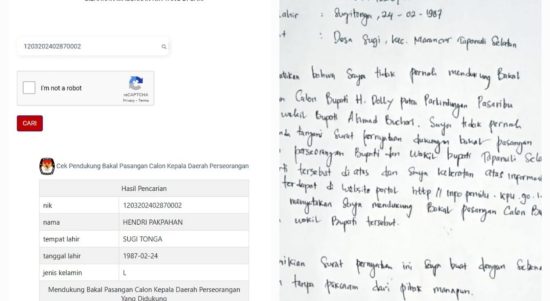 1203202402870002
I'm not a robot
reCAPTCHA
Privacy - Terms
CARI
Cek Pendukung Bakal Pasangan Calon Kepala Daerah Perseorangan
Hasil Pencarian
nik 1203202402870002
nama HENDRI PAKPAHAN
tempat lahir SUGI TONGA
tanggal lahir 1987-02-24
jenis kelamin L
Mendukung Bakal Pasangan Calon Kepala Daerah Perseorangan
Yang Didukung
lahir : Sugitonga, 24 - 02 - 1987
: Desa Sugi, Kec. Marancar Tapanuli Selatan
bahwa Saya tidak pernah mendukung Bakal
Calon Bupati H. Dolly putra Parlindungan Pasaribu
wakil Bupati Ahmad Buchori. Saya tidak pernah
tangani Surat pernyataan dukungan bakal pasangan
perseorangan Bupati dan wakil bupati Tapanuli Selatan
tersebut di atas dan Saya keberatan atas informasi
terdapat di website portal http //
menyatakan Saya mendukung Bakal pasangan Calon
wakil Bupati tersebut.
Surat pernyataan ini Saya buat dengan
tanpa paksaan dari pihak manapun.